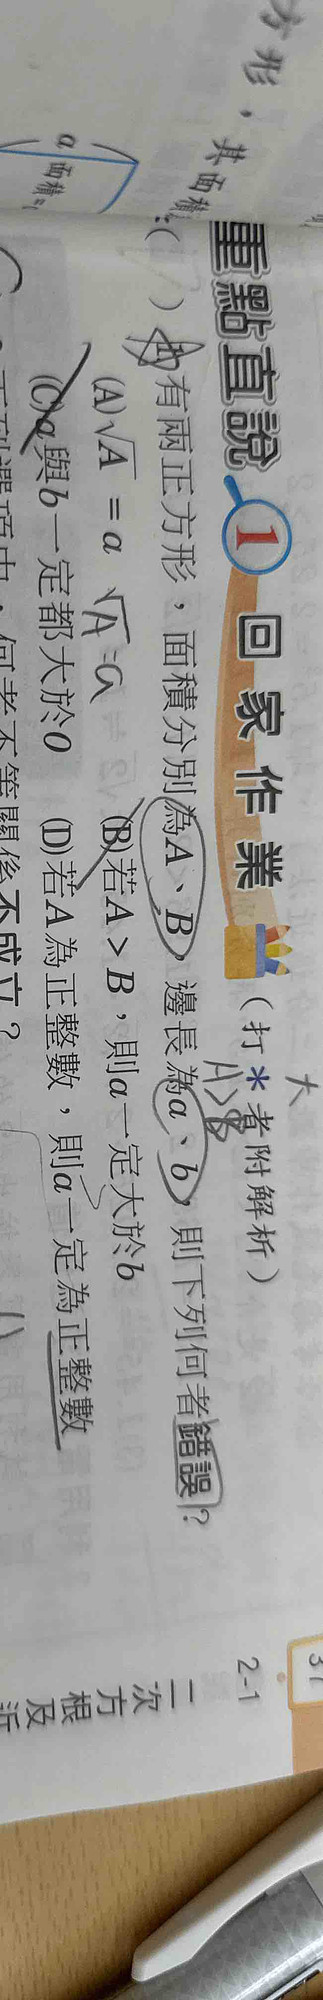 方形，其面積
a
面積=
重點直說 1 回家作業 (打＊者附解析)
大
A>B
( ) 有兩正方形，面積分別為A、B，邊長為a、b，則下列何者錯誤？
(A)√A = a √A=a (B)若A > B，則a一定大於b
(C)a與b一定都大於0 (D)若A為正整數，則a一定為正整數
下列選項中，何者不等關係不成立？
2-1
二次方根及近